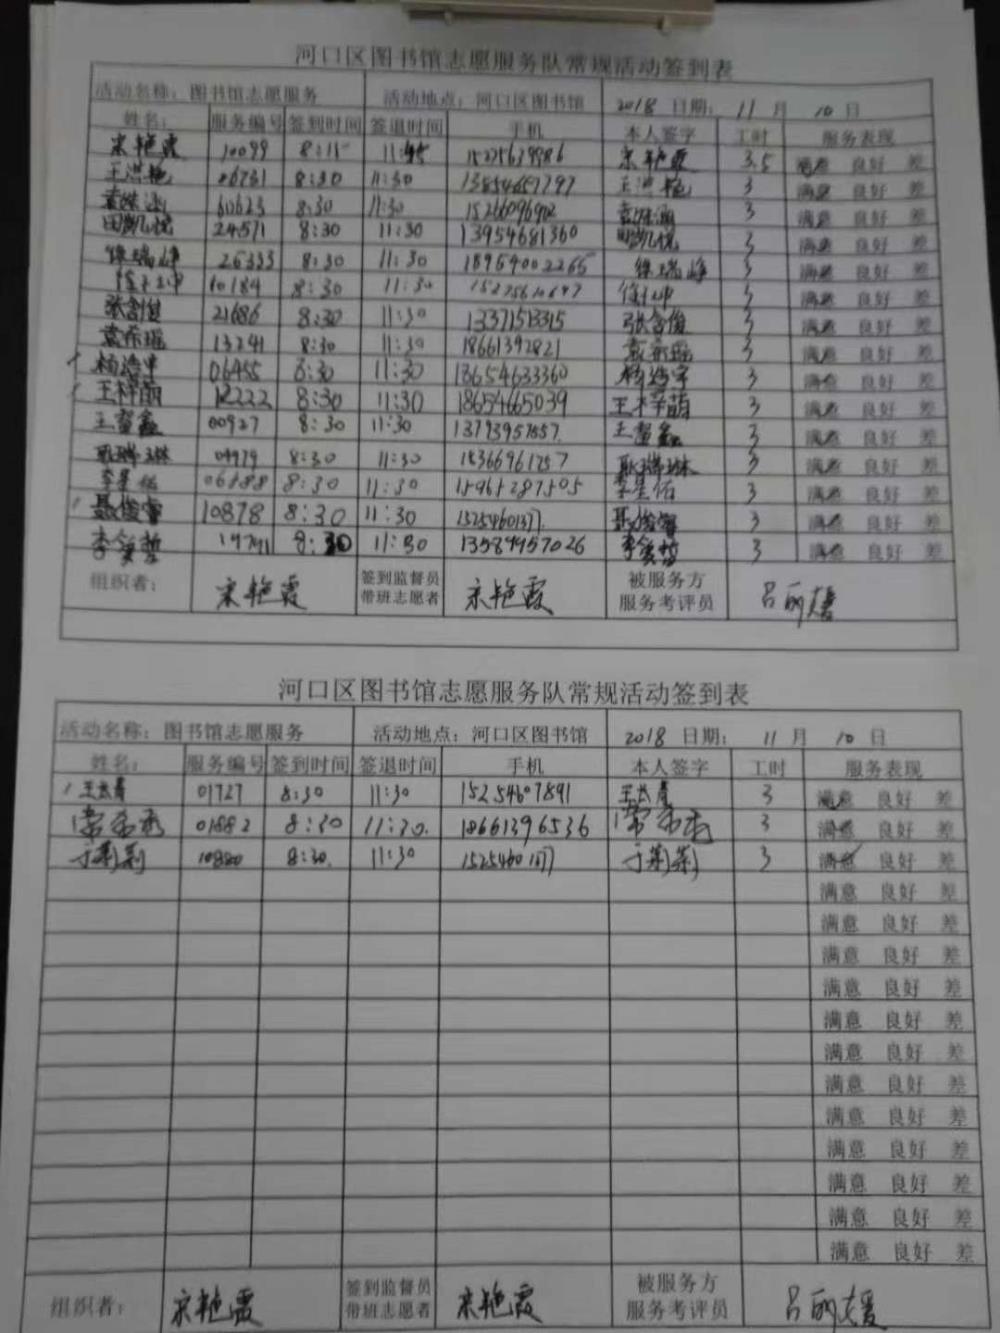 河口区图书馆志愿服务队常规活动签到表
活动名称：图书馆志愿服务 活动地点：河口区图书馆 2018 日期： 11 月 10 日
姓名： 服务编号 签到时间 签退时间 手机 本人签字 工时 服务表现
宋艳霞 10099 8:15 11:45 宋艳霞 3.5 满意 良好 差
王洪艳 06731 8:30 11:30 13854657797 王洪艳 3 满意 良好 差
60623 8:30 11:30 3 满意 良好 差
田凯悦 24571 8:30 11:30 13954681360 田凯悦 3 满意 良好 差
徐瑞峰 26333 8:30 11:30 18954002265 徐瑞峰 3 满意 良好 差
10184 8:30 11:30 3 满意 良好 差
张含俊 21686 8:30 11:30 13371513315 张含俊 3 满意 良好 差
袁希瑶 13241 8:30 11:30 18661392821 袁希瑶 3 满意 良好 差
杨浩宇 06455 8:30 11:30 13654633360 杨浩宇 3 满意 良好 差
王梓萌 12222 8:30 11:30 18654665039 王梓萌 3 满意 良好 差
王玺鑫 00927 8:30 11:30 王玺鑫 3 满意 良好 差
耿瑞琳 09979 8:30 11:30 18366961757 耿瑞琳 3 满意 良好 差
李星佑 8:30 11:30 15965287505 李星佑 3 满意 良好 差
聂俊睿 10878 8:30 11:30 聂俊睿 3 满意 良好 差
8:30 11:30 13589957026 3 满意 良好 差
组织者： 宋艳霞 签到监督员 宋艳霞 被服务方 吕丽媛
带班志愿者 服务考评员
河口区图书馆志愿服务队常规活动签到表
活动名称：图书馆志愿服务 活动地点：河口区图书馆 2018 日期： 11 月 10 日
姓名： 服务编号 签到时间 签退时间 手机 本人签字 工时 服务表现
01727 8:30 11:30 15254607891 3 满意 良好 差
01882 8:30 11:30. 18661396536 3 满意 良好 差
于莉莉 10880 8:30. 11:30 于莉莉 3 满意 良好 差
满意 良好 差
满意 良好 差
满意 良好 差
满意 良好 差
满意 良好 差
满意 良好 差
满意 良好 差
满意 良好 差
满意 良好 差
满意 良好 差
满意 良好 差
满意 良好 差
组织者： 宋艳霞 签到监督员 宋艳霞 被服务方 吕丽媛
带班志愿者 服务考评员